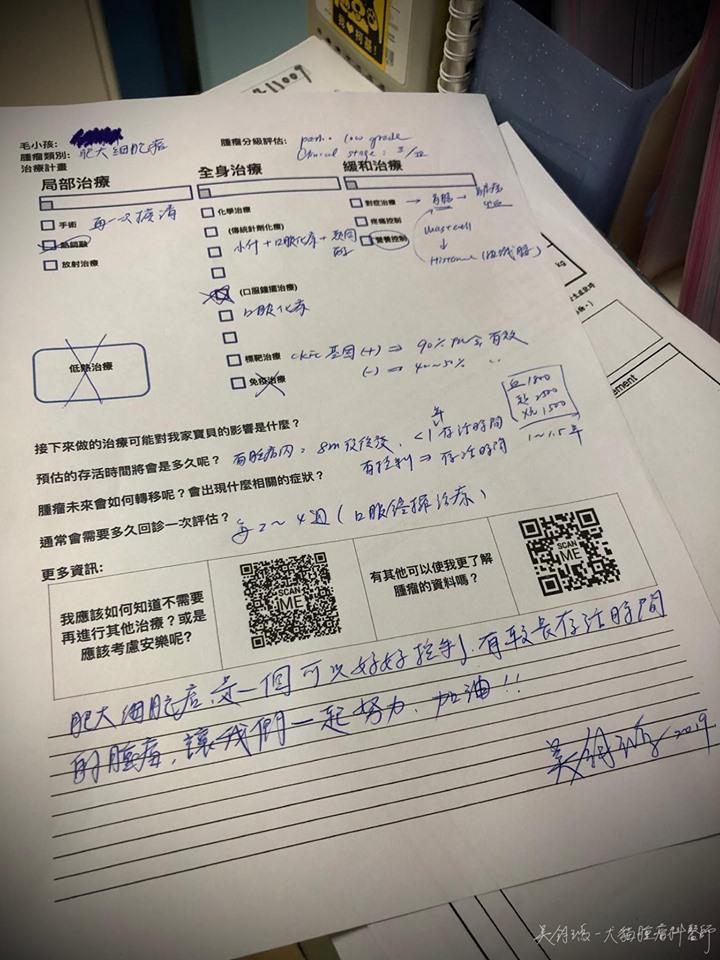 我♥柯基!
毛小孩:
腫瘤類別: 肥大細胞瘤
腫瘤分級評估: path. low grade
Clinical stage: II/III
治療計畫
局部治療
全身治療
緩和治療
手術 再一次擴清
熱消融
放射治療
低熱治療
化學治療
(傳統針劑化療)
小針+口服化療+類固醇
(口服鐘擺治療)
口服化療
標靶治療 ckit 基因 (+) ⇒ 90% 有效
(-) ⇒ 40~50% 〃
免疫治療
對症治療 → 胃腸 →
疼痛控制
營養控制
Mast cell
↓
Histamine
kg
ement
血 1800
超 2500
X光 1500
接下來做的治療可能對我家寶貝的影響是什麼?
預估的存活時間將會是多久呢?
<1年存活時間
有控制 ⇒ 存活時間 1~1.5年
腫瘤未來會如何轉移呢?會出現什麼相關的症狀?
通常會需要多久回診一次評估? 每2~4週
更多資訊:
我應該如何知道不需要
再進行其他治療?或是
應該考慮安樂呢?
SCAN
ME
有其他可以使我更了解
腫瘤的資料嗎?
SCAN
ME
肥大細胞瘤,是一個可以好好控制,有較長存活時間
的腫瘤,讓我們一起努力,加油!!
2019
犬貓腫瘤科醫師